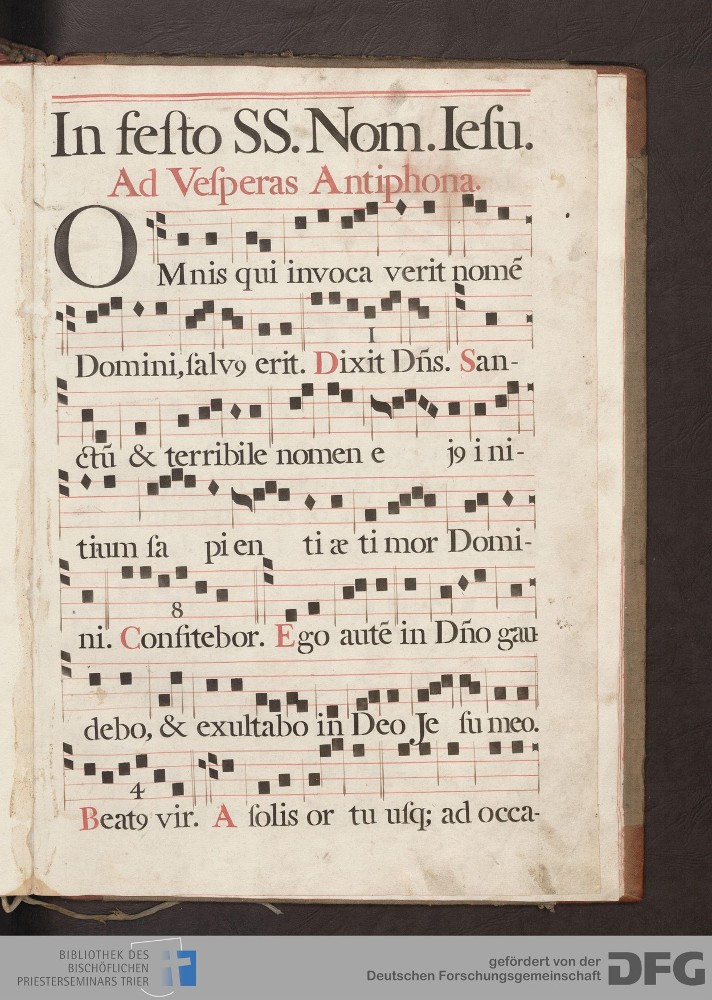 In feſto SS. Nom. Ieſu.
Ad Veſperas Antiphona.
OMnis qui invoca verit nomẽ
Domini, ſalvꝯ erit. Dixit Dñs. San-
1
ctũ & terribile nomen e jꝯ i ni-
tium ſa pi en ti æ ti mor Domi-
8
ni. Confitebor. Ego autẽ in Dño gau
debo, & exultabo in Deo Je ſu meo.
4
Beatꝯ vir. A ſolis or tu uſq; ad occa-
BIBLIOTHEK DES
BISCHÖFLICHEN
PRIESTERSEMINARS TRIER
gefördert von der
Deutschen Forschungsgemeinschaft
DFG